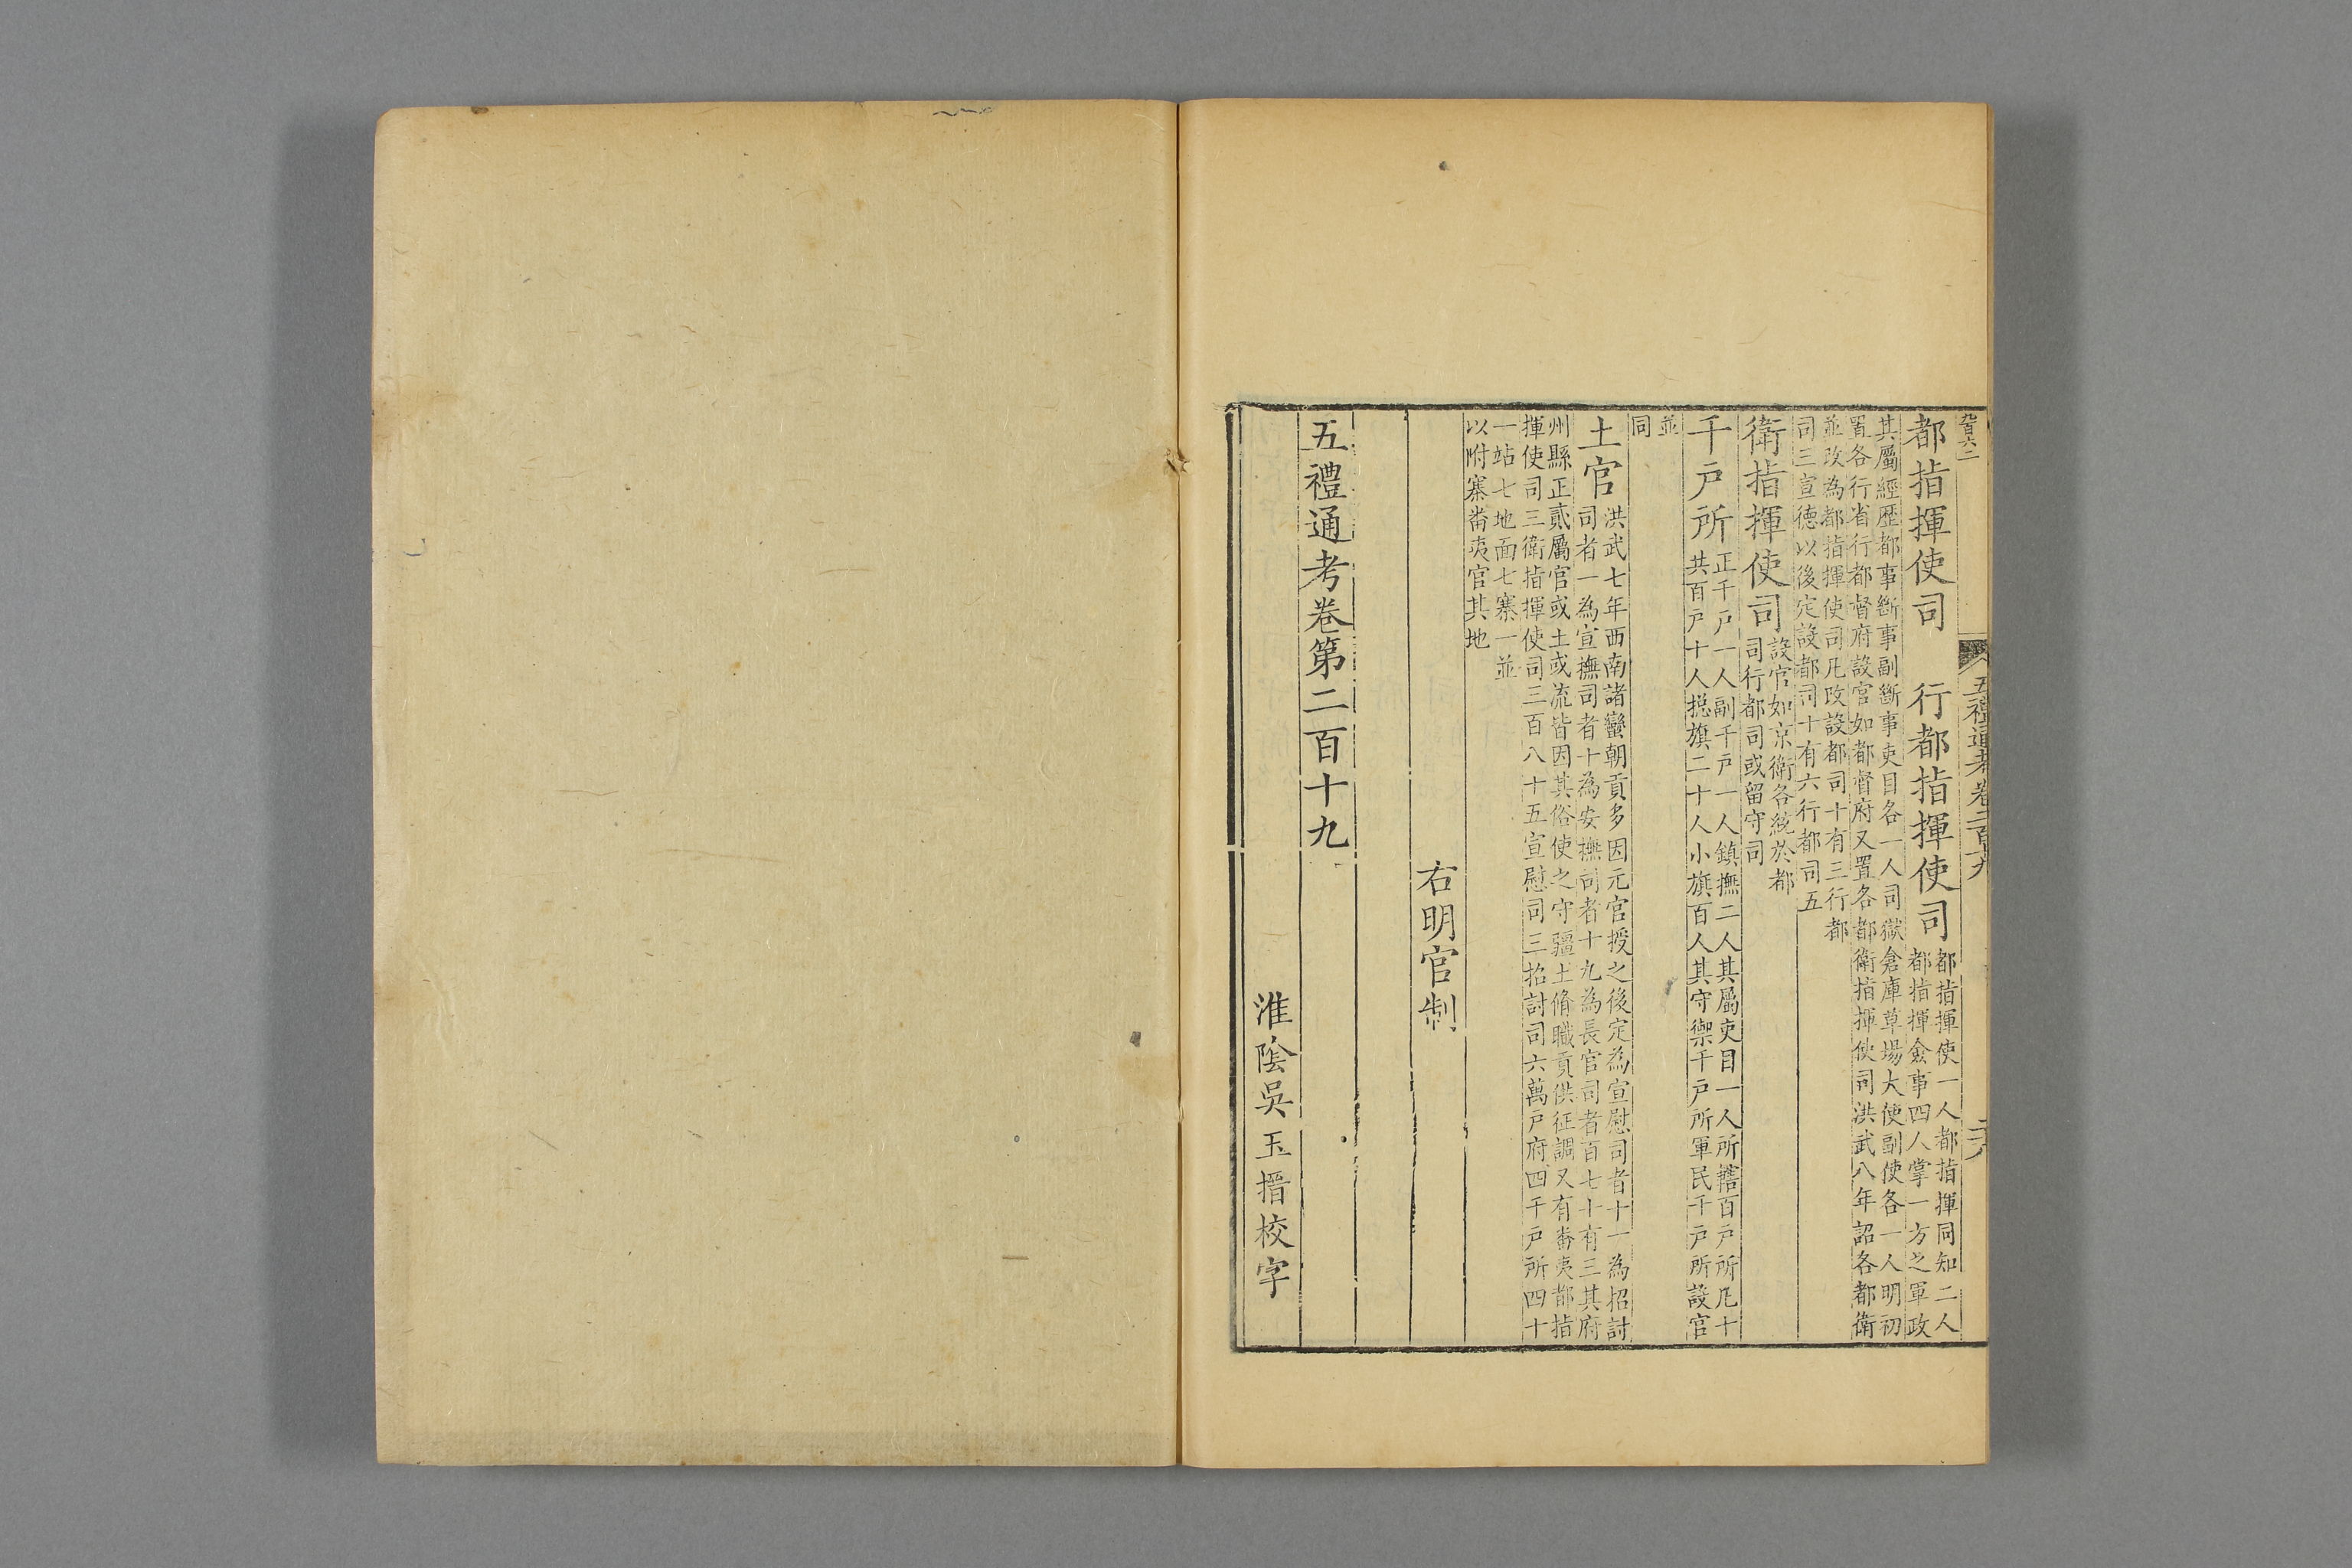 五禮通考卷二百十九
都指揮使司　行都指揮使司
都指揮使一人都指揮同知二人
都指揮僉事四人掌一方之軍政
其屬經歷都事斷事副斷事吏目各一人司獄倉庫草場大使副使各一人明初
置各行省行都督府設官如都督府又置各都衛指揮使司洪武八年詔各都衛
並改為都指揮使司凡改設都司十有三行都
司三宣德以後定設都司十有六行都司五
衛指揮使司
設官如京衛各統於都
司行都司或留守司
千戶所
正千戶一人副千戶一人鎮撫二人其屬吏目一人所轄百戶所凡十
共百戶十人摠旗二十人小旗百人其守禦千戶所軍民千戶所設官
並
同
土官
洪武七年西南諸蠻朝貢多因元官授之後定為宣慰司者十一為招討
司者一為宣撫司者十為安撫司者十九為長官司者百七十有三其府
州縣正貳屬官或土或流皆因其俗使之守疆土脩職貢供征調又有番夷都指
揮使司三衛指揮使司三百八十五宣慰司三招討司六萬戶府四千戶所四十
一站七地面七寨一並
以附寨番夷官其地
右明官制
五禮通考卷第二百十九
淮陰吳玉搢校字